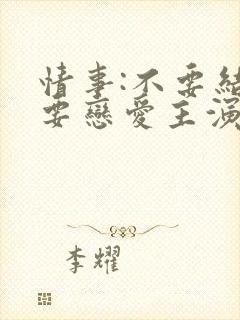 情事:不要結
要戀愛主演
李耀